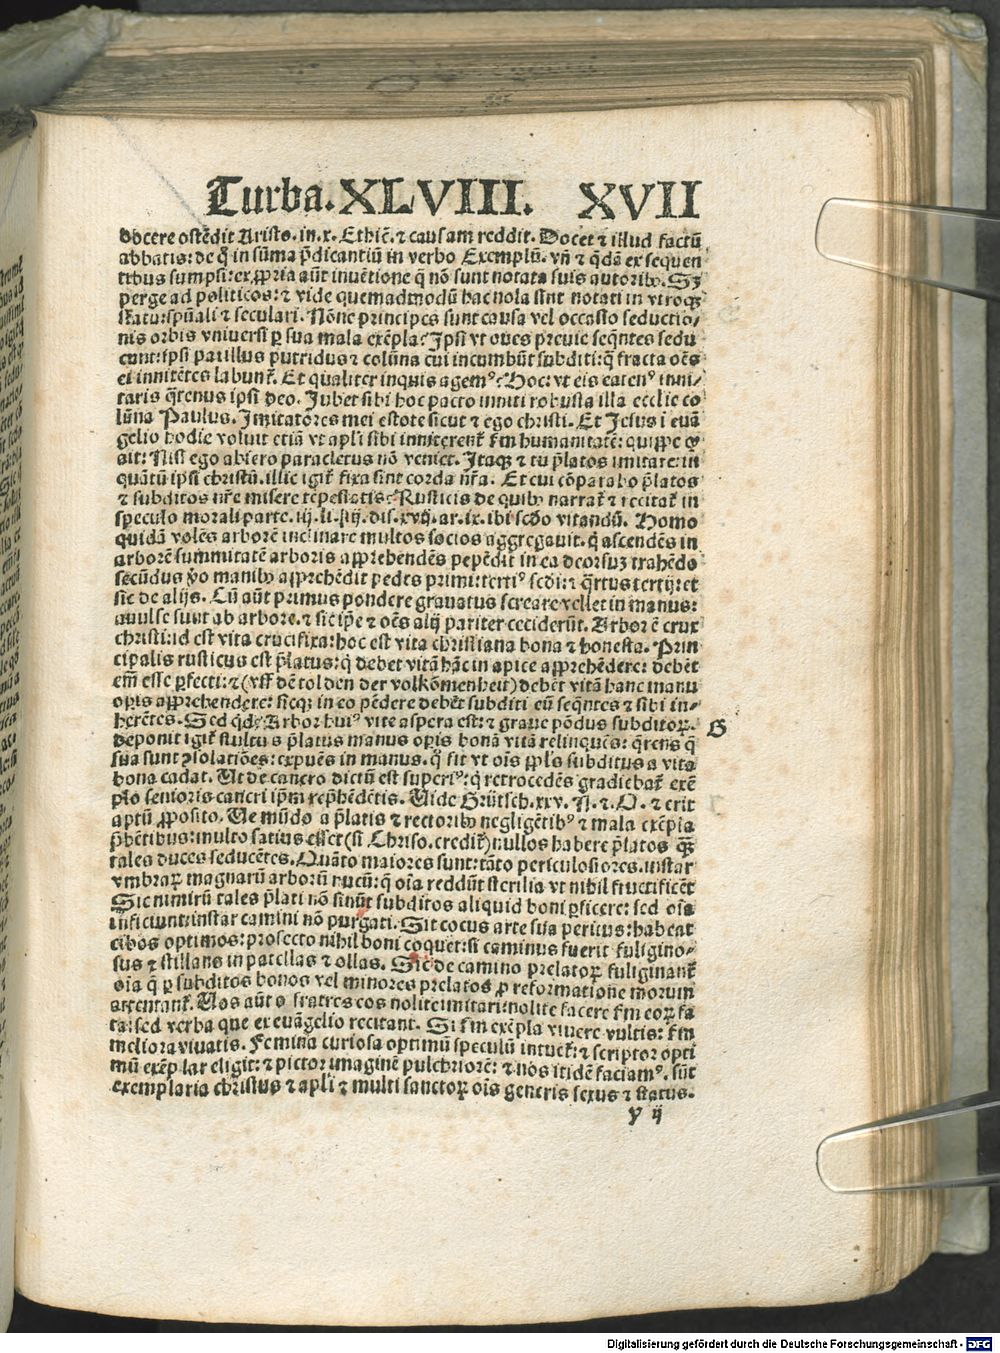 Turba. XLVIII. XVII
docere ostēdit Aristo. in .x. Ethic̄. ⁊ causam reddit. Docet ⁊ illud factū
abbatis: de q̊ in sūma p̄dicantiū in verbo Exemplū. vn̄ ⁊ q̄dā ex sequen
tibus sumpsi: ex ꝓpria aūt inuētione q̄ nō sunt notata suis autoribꝰ. Sꝫ
perge ad politicos: ⁊ vide quemadmodū hac nola sint notati in vtroqꝫ
statu: spūali ⁊ seculari. Nōne principes sunt causa vel occasio seductio/
nis orbis vniuersi ꝑ sua mala exēpla? Ipsi vt oues preuie seq̄ntes sedu
cunt: ipsi paxillus putridus ⁊ colūna cui incumbūt subditi: q̄ fracta oēs
ei innitētes labunt᷑. Et qualiter inquis agemꝰ? Hoc: vt eis eatenꝰ inni/
taris q̄tenus ipsi deo. Jubet sibi hoc pacto inniti robusta illa ecclie co
lūna Paulus. Imitatōres mei estote sicut ⁊ ego christi. Et Jesus i euā
gelio hodie voluit etiā vt apl̄i sibi inniterent᷑ ẜm humanitatē: quippe q̇
ait: Nisi ego abiero paracletus nō veniet. Itaqꝫ ⁊ tu p̄latos imitare: in
quātū ipsi christū. illic igit᷑ fixa sint corda nr̄a. Et cui cōparabo p̄latos
⁊ subditos nr̄e misere tēpestatis? Rusticis de quibꝰ narrat᷑ ⁊ recitat᷑ in
speculo morali parte. iij. li. iij. dis. xvij. ar. ix. ibi scd̄o vitandū. Homo
quidā volēs arborē inclinare multos socios aggregauit. q̇ ascendēs in
arborē summitatē arboris apprehendēs pepēdit in ea deorsuꝫ trahēdo
secūdus v̊o manibꝰ apprehēdit pedes primi: tertiꝰ scd̄i: ⁊ q̄rtus tertij: et
sic de alijs. Cū aūt primus pondere grauatus screare vellet in manus:
auulse sunt ab arbore. ⁊ sic ip̄e ⁊ oēs alij pariter ceciderūt. Arbor ē crux
christi: id est vita crucifixa: hoc est vita christiana bona ⁊ honesta. Prin
cipalis rusticus est p̄latus: q̇ debet vitā hāc in apice apprehēdere: debēt
em̄ esse ꝑfecti: ⁊ (vff dē tolden der volkōmenheit) debēt vitā hanc manu
oꝑis apprehendere: sicqꝫ in eo pēdere debēt subditi eū seq̄ntes ⁊ sibi in/
herētes. Sed q̇d? Arbor huiꝰ vite aspera est: ⁊ graue pōdus subditoꝝ.
deponit igit᷑ stultus p̄latus manus oꝑis bonā vitā relinquēs: q̄rens q̄
sua sunt ↄsolatiōes: expuēs in manus. q̊ fit vt oīs ppl̄s subditus a vita
bona cadat. Ut de cancro dictū est superiꝰ: q̇ retrocedēs gradiebat᷑ exē
plo senioris cancri ip̄m rep̄hēdētis. Vide Grütsch. xxv. N. ⁊ O. ⁊ erit
aptū ꝓposito. Ve mūdo a p̄latis ⁊ rectoribꝰ negligētibꝰ ⁊ mala exēpla
p̄bētibus: multo satius esset (si Chriso. credit᷑) nullos habere p̄latos q̄ꝫ
tales duces seducētes. Quāto maiores sunt: tāto periculosiores. instar
vmbraꝝ magnarū arborū nucū: q̄ oīa reddūt sterilia vt nihil fructificēt
Sic nimirū tales p̄lati nō sinūt subditos aliquid boni ꝑficere: sed oīa
inficiunt: instar camini nō purgati. Sit cocus arte sua peritus: habeat
cibos optimos: profecto nihil boni coquet: si caminus fuerit fuligino/
sus ⁊ stillans in patellas ⁊ ollas. Sic de camino prelatoꝝ fuliginant᷑
oīa q̄ ꝑ subditos bonos vel minores prelatos ꝓ reformatione morum
attentant᷑. Vos aūt o fratres eos nolite imitari: nolite facere ẜm eoꝝ fa
cta: sed verba que ex euāgelio recitant. Si ẜm exēpla viuere vultis: ẜm
meliora viuatis. Femina curiosa optimū speculū intuet᷑: ⁊ scriptor opti
mū exēplar eligit: ⁊ pictor imaginē pulchriorē: ⁊ nos itidē faciamꝰ. sūt
exemplaria christus ⁊ apl̄i ⁊ multi sanctoꝝ oīs generis sexus ⁊ status.
G
y ij
Digitalisierung gefördert durch die Deutsche Forschungsgemeinschaft - DFG